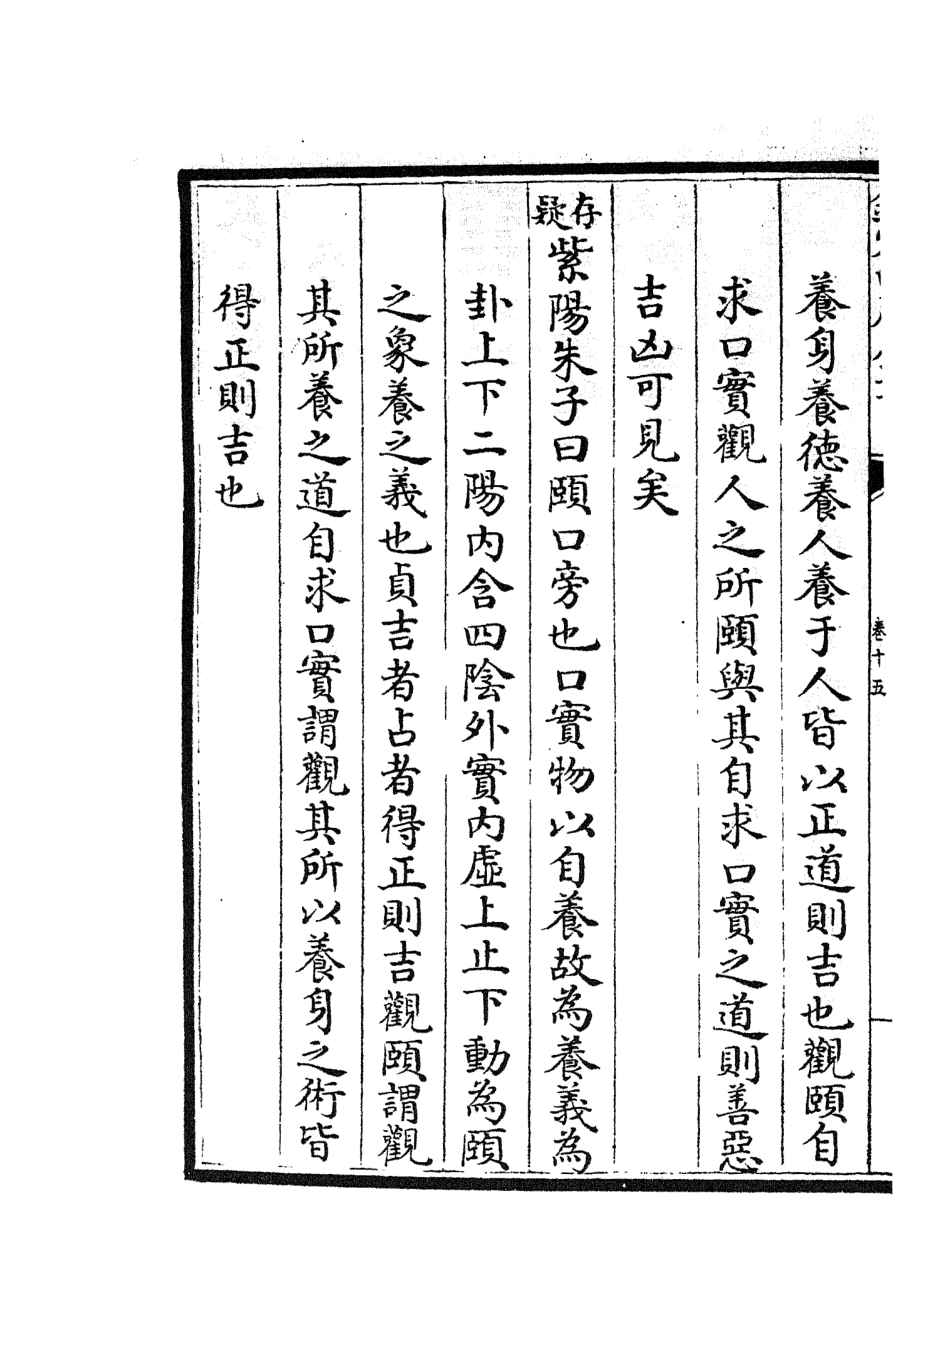 養身養德養人養于人皆以正道則吉也觀頤自
求口實觀人之所頤與其自求口實之道則善惡
吉凶可見矣
存疑紫陽朱子曰頤口旁也口實物以自養故為養義為
卦上下二陽内含四陰外實内虛上止下動為頤
之象養之義也貞吉者占者得正則吉觀頤謂觀
其所養之道自求口實謂觀其所以養身之術皆
得正則吉也
卷十五